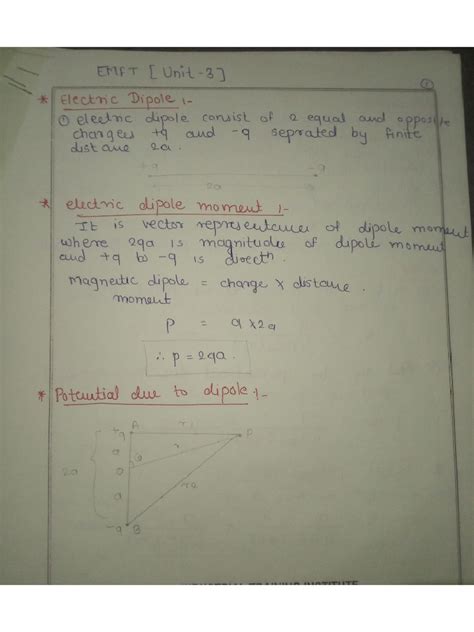 EMFT [Unit-3]
①
* Electric Dipole :-
① electric dipole consist of 2 equal and opposite
charges +q and -q seprated by finite
distane 2a.
+q -q
2a
* electric dipole moment :-
It is vector representances of dipole moment
where 2qa is magnitudes of dipole moment
and +q to -q is directn
magnetic dipole = charge × distane.
moment
P = q × 2a
∴ p = 2qa.
* Potential due to dipole :-
+q A r1 P
a θ r
2a
0
a r2
-q B
INDUSTRIAL TRAINING INSTITUTE